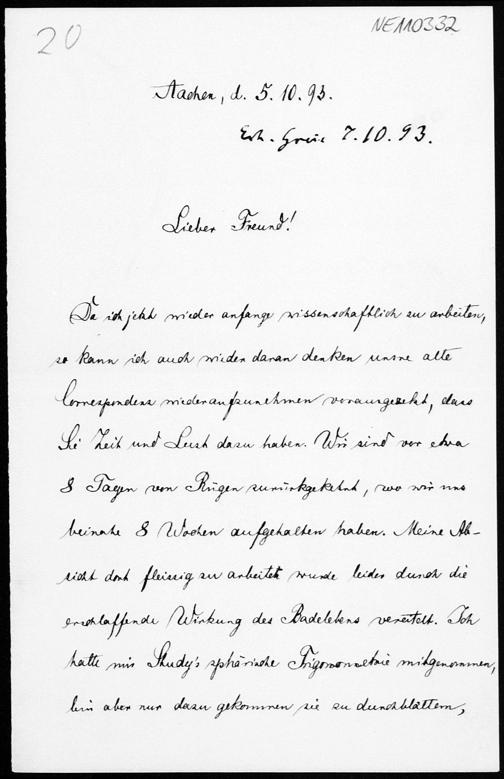 20
NE110332
Aachen, d. 5.10.93.
Erh. 7.10.93.
Lieber Freund!
Da ich jetzt wieder anfange wissenschaftlich zu arbeiten,
so kann ich auch wieder daran denken unsre alte
Correspondenz wiederaufzunehmen vorausgesetzt, dass
Sie Zeit und Lust dazu haben. Wir sind vor etwa
8 Tagen von Rügen zurückgekehrt, wo wir uns
beinahe 8 Wochen aufgehalten haben. Meine Ab-
sicht dort fleissig zu arbeiten wurde leider durch die
erschlaffende Wirkung des Badelebens vereitelt. Ich
hatte mir Study's sphärische Trigonometrie mitgenommen,
bin aber nur dazu gekommen sie zu durchblättern,